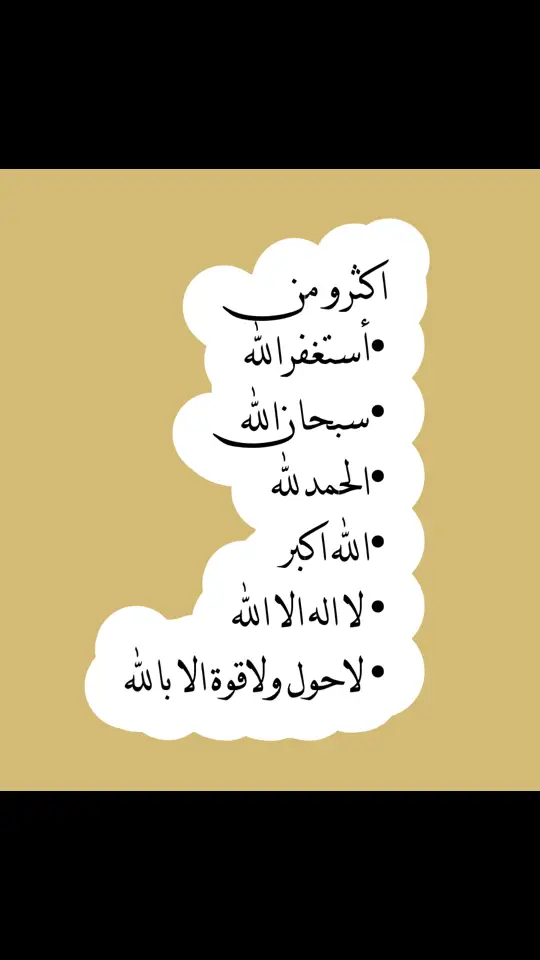 اكثرو من
•أستغفر الله
•سبحان الله
•الحمد لله
•الله اكبر
•لا اله الا الله
•لا حول ولا قوة الا بالله